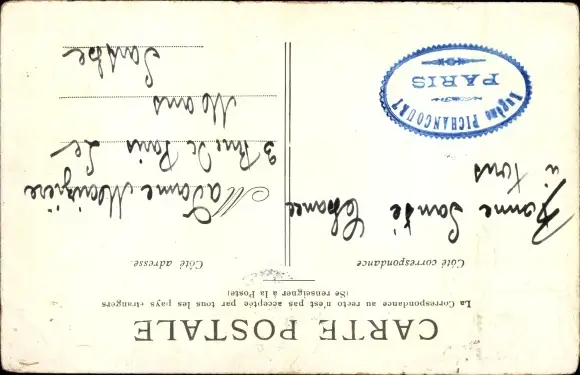 CARTE POSTALE
La Correspondance au recto n'est pas acceptée par tous les pays étrangers
(Se renseigner à la Poste)
Côté correspondance
Côté adresse
Bonne Santé Chance
à tous
Eugène PICHANCOURT
PARIS
Madame
3 Rue de Paris Le
Mans
Sarthe